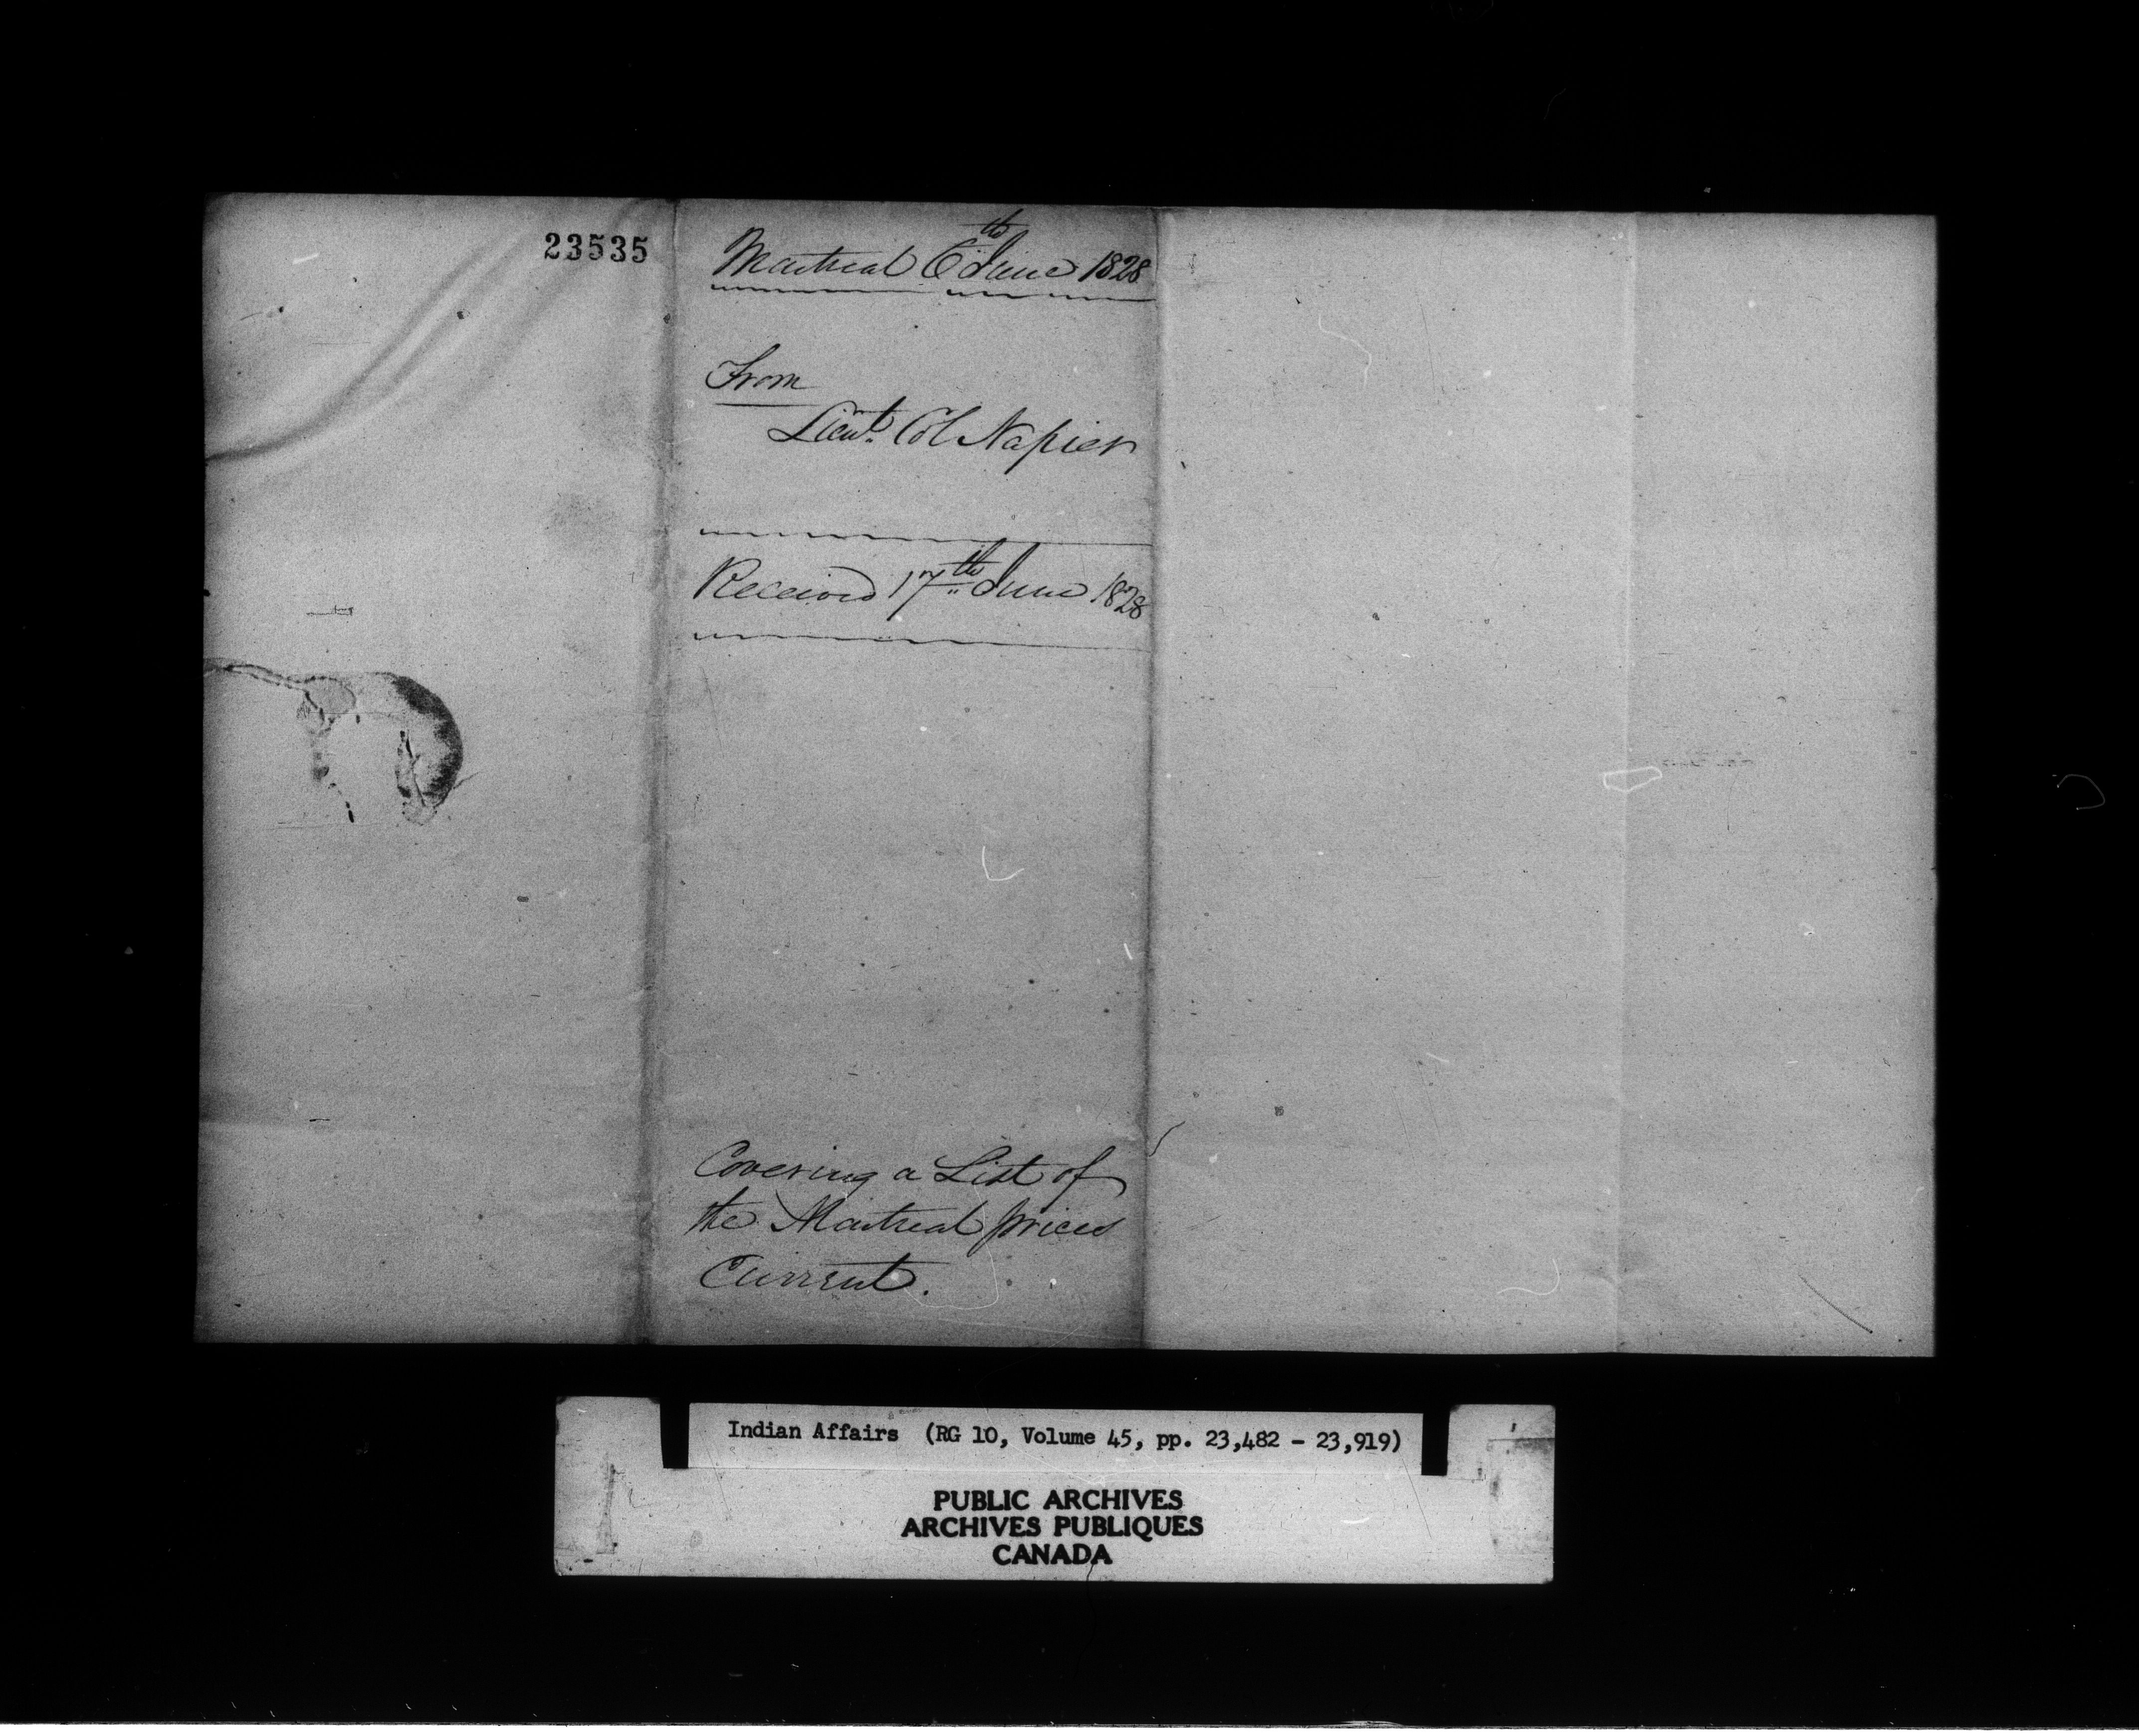 23535
Montreal 6th June 1828
From
Lieut. Col Napier
Received 17th June 1828
Covering a List of
the Montreal prices
Current.
Indian Affairs (RG 10, Volume 45, pp. 23,482 - 23,919)
PUBLIC ARCHIVES
ARCHIVES PUBLIQUES
CANADA